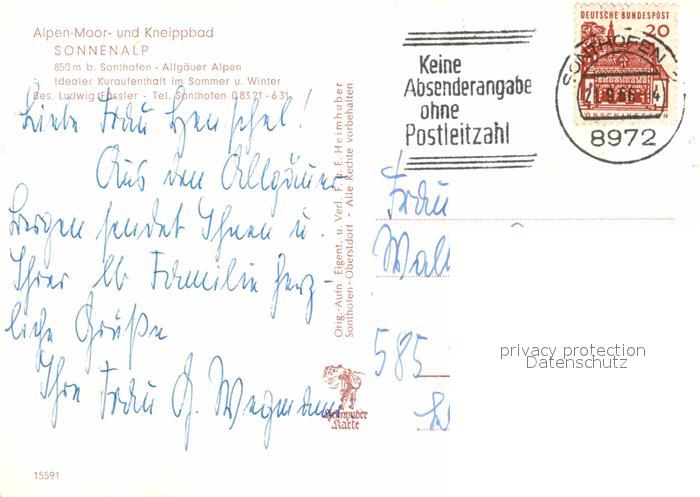 Alpen-Moor- und Kneippbad
SONNENALP
850 m b. Sonthofen - Allgäuer Alpen
Idealer Kuraufenthalt im Sommer u. Winter
Bes. Ludwig Fässler - Tel. Sonthofen 0 83 21 - 6 31
Liebe Frau Henschel!
Aus den Allgäuer
Bergen sendet Ihnen u.
Ihrer lb. Familie herz-
liche Grüße
Ihre Frau G. Wegmann
15591
Orig.-Aufn. Eigent. u. Verl. F. u. E. Heimhuber
Sonthofen - Oberstdorf - Alle Rechte vorbehalten
Heimhuber
Karte
Keine
Absenderangabe
ohne
Postleitzahl
DEUTSCHE BUNDESPOST
20
SONTHOFEN
8972
Frau
Wall
585
privacy protection
Datenschutz